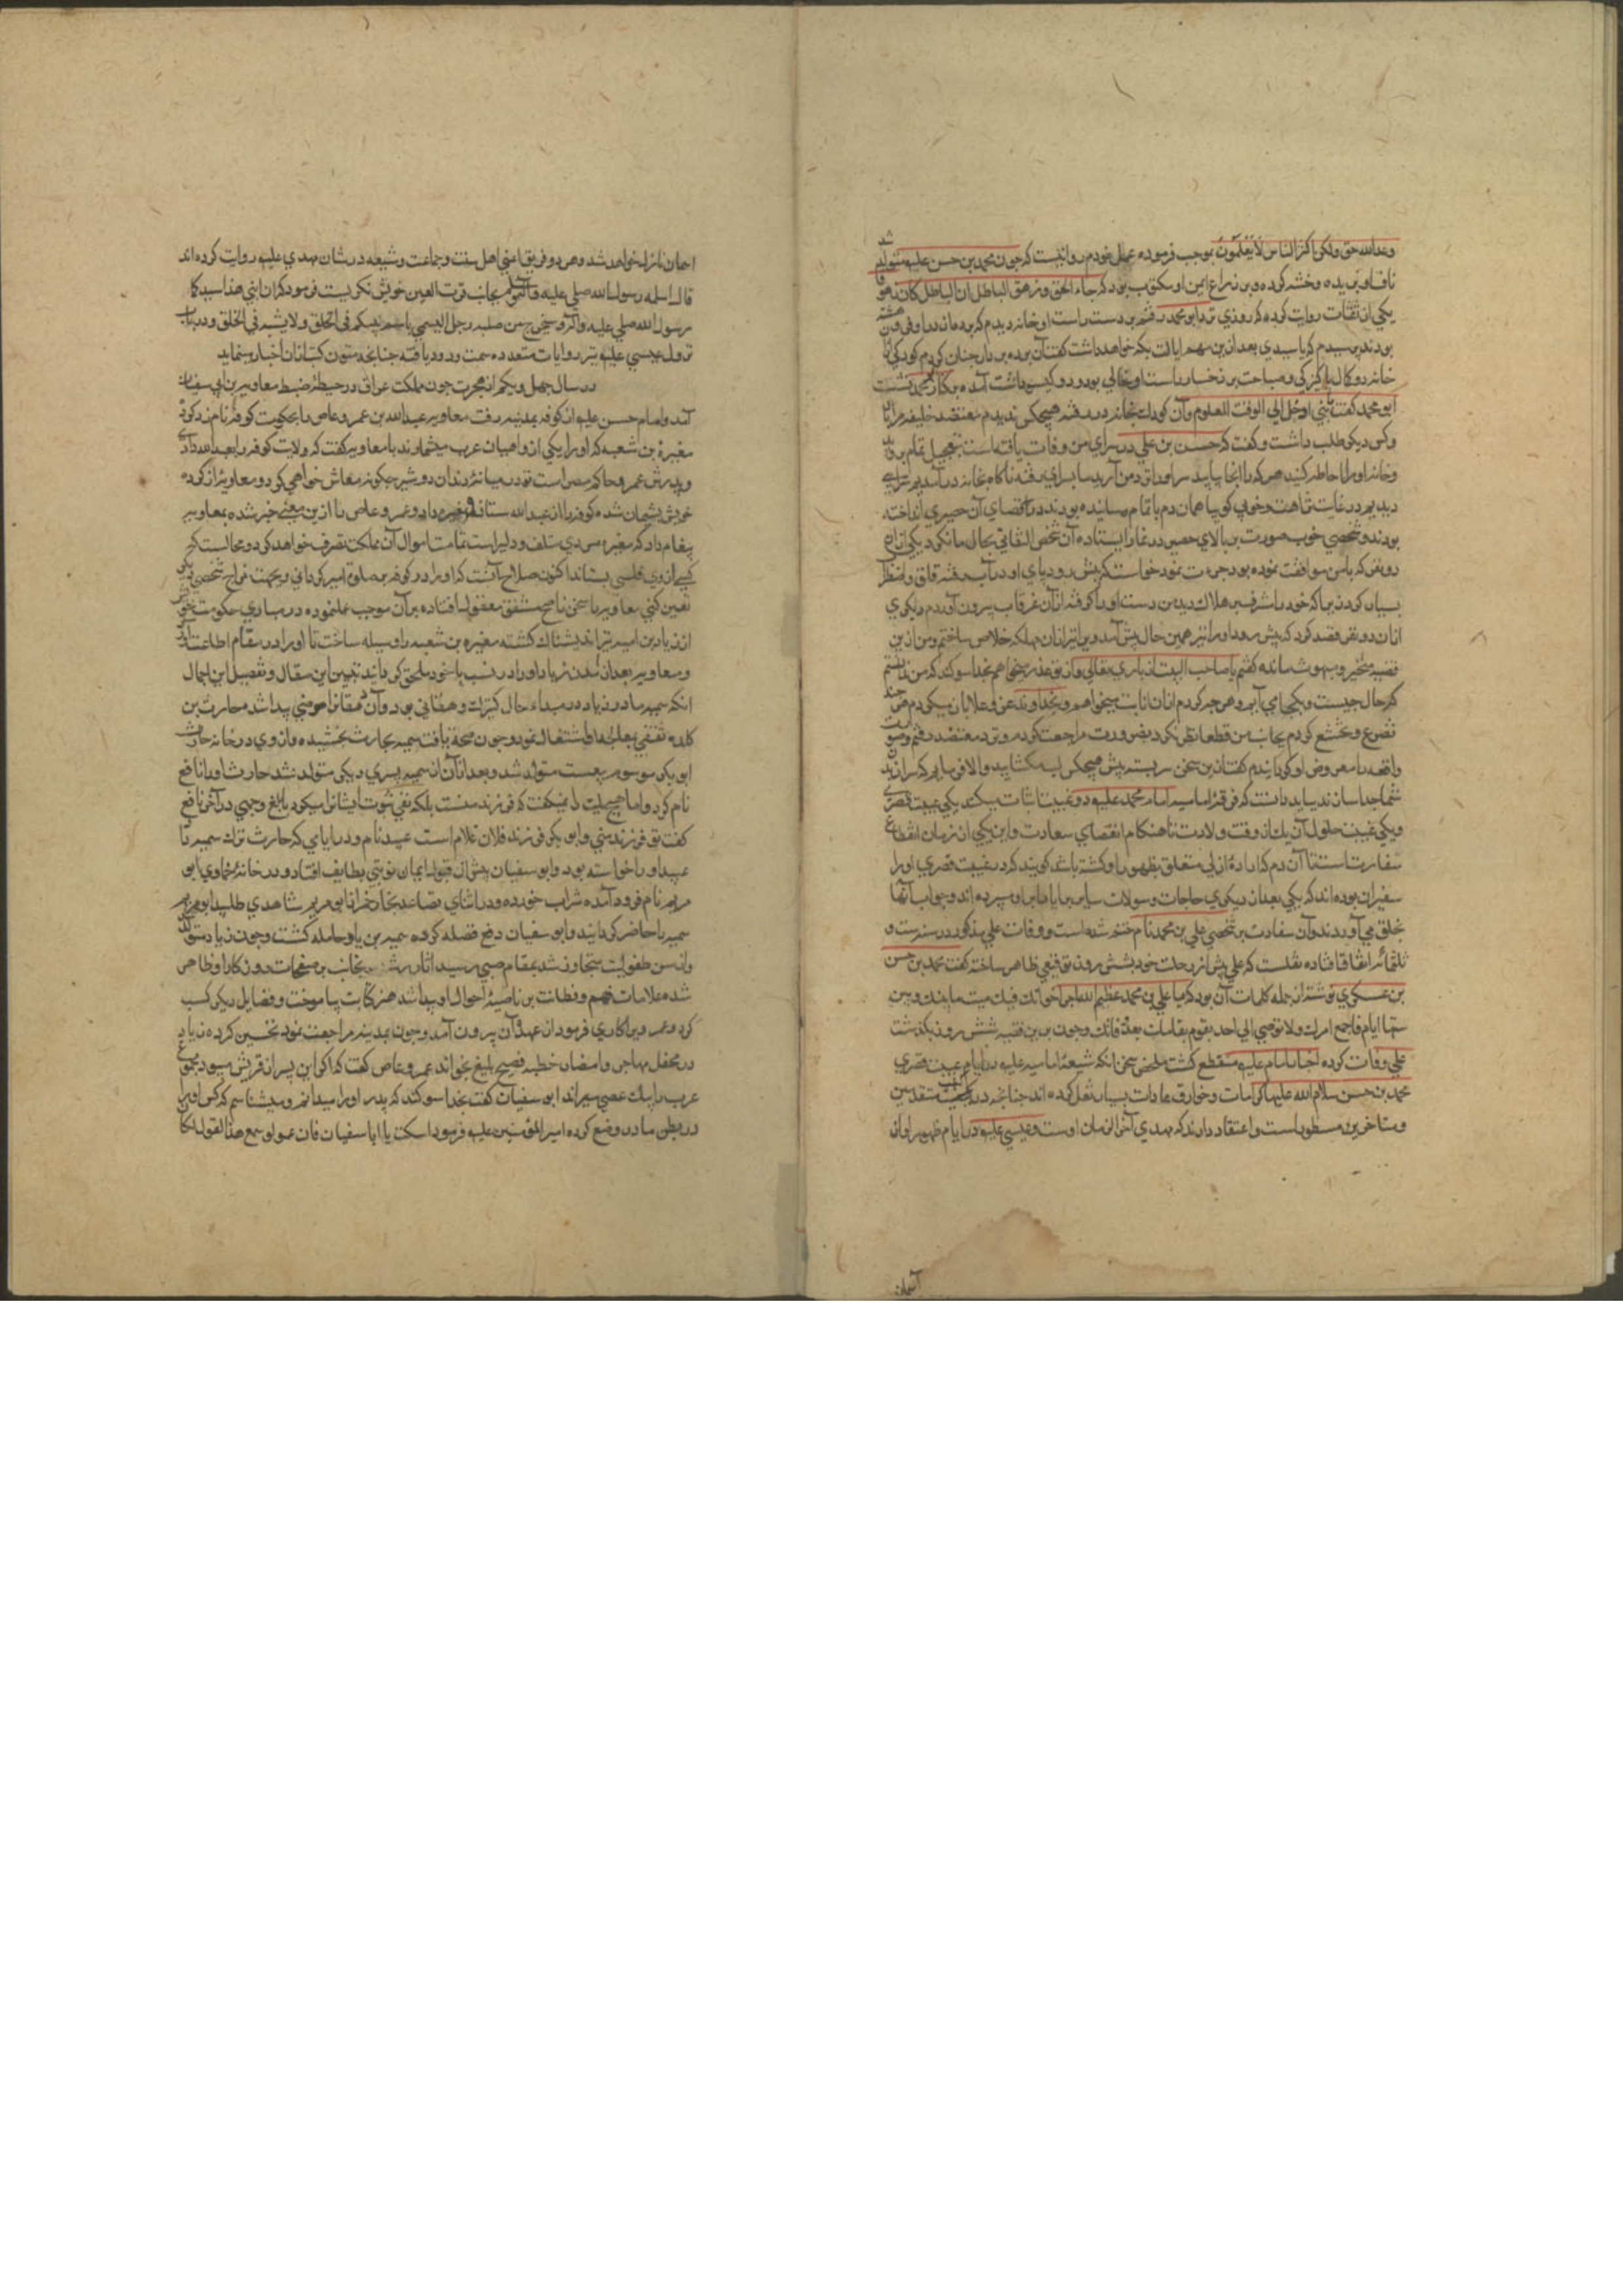 وعد الله حق ولكن اكثر الناس لا يعلمون بموجب فرموده عمل نمودم روايتست كه چون محمد بن حسن عليه متولد شد
ناف او بريده و ختنه كرده و بر ذراع ايمن او مكتوب بود كه جاء الحق وزهق الباطل ان الباطل كان زهوقا
يكى از ثقات روايت كرده كه روزي نزد ابو محمد رفتم بر دست راست او خانه ديدم كه پرده بران در او فرو هشته
بودند پرسيدم كه يا سيدي بعد ازين مهم ايالت بكه خواهد داشت گفت آن پرده بردار چنان كردم كودكى ازان
خانه در كمال پاكيزكى و صباحت بر رخسار راست او خالي بود و دو گيسو داشت آمده بر كنار محمد نشست
ابو محمد گفت يا بني ادخل الي الوقت المعلوم و آن كودك بخانه در رفت هيچكس نديدم معتضد خليفه مرا با
دو كس ديكر طلب داشت و گفت كه حسن بن علي در سراي من وفات يافته است بتعجيل تمام برويد
و خانه او را احاطه كنيد هر كه را انجا بيابيد سر او را نزد من آريد ما بسراي رفته ناكاه بخانه در آمديم سرايي
ديديم در غايت نزاهت و خوبي گويا همان دم باتمام رسانيده بودند در اقصاي آن حصيري انداخته
بودند و شخصي خوب صورت بر بالاي حصير در نماز ايستاده آن شخص التفاتي بحال ما نكرد يكى ازان
دو نفر كه با من موافقت نموده بود جرءت نمود خواست كه پيش رود پاي او در آب رفته قلق و اضطراب
بسيار كرد نزديك كه خود را مشرف بر هلاك ديد من دست او را گرفته ازان غرقاب بيرون آوردم ديكري
ازان دو نفر قصد كرد كه پيش رود او را نيز همين حال پيش آمد و ويرا نيز ازان مهلكه خلاص ساختم و من ازين
قضيه متحير و مبهوت مانده گفتم يا صاحب البيت از باري تعالي و از تو عذر ميخواهم بخدا سوكند كه من ندانستم
كه حال چيست و بكجا مي آيم و هر چه كردم ازان انابت ميخواهم و بخداوند عز و علا باز ميكردم هر چند
تضرع و تخشع كردم بجانب من قطعا نظر نكرد بضرورت مراجعت كرده و نزد معتضد رفتم و صورت
واقعه را معروض او گردانيدم گفت ازين سخن سربسته پيش هيچكس لب مكشاييد و الا فرمايم كه سر از تن
شما جدا سازند ببايد دانست كه فرقه اماميه امام محمد عليه دو غيبت اثبات ميكنند يكي غيبت قصري
و يكي غيبت طول آن يك از وقت ولادت تا هنكام انقضاي سعادت و اين يكي از زمان انقطاع
سفارت است تا آن دم كه اراده ازلي متعلق بظهور او كشته باشد گويند كه در غيبت قصري او را
سفيران بوده اند كه يكي بعد از ديكري حاجات و سوالات ساير برايا را باو سپرده اند و جواب آنها
بخلق مي آوردند و آن سفارت بر شخصي علي بن محمد نام ختم شده است و وفات علي مذكور در سنه ست و
ثلثمائه اتفاق افتاده نقلست كه علي پيش از رحلت خود بشش روز توقيعي ظاهر ساخته گفت محمد بن حسن
بن عسكري نوشته از جمله كلمات آن بود كه يا علي بن محمد عظم الله اجر اخوانك فيك ميت ما بينك و بين
ستة ايام فاجمع امرك ولا توصي الي احد يقوم مقامك بعد وفاتك و چون برين قضيه شش روز بكذشت
علي وفات كرده اخبار امام عليه منقطع كشت ملخص سخن انكه شيعه اماميه عليه در ايام غيبت قصري
محمد بن حسن سلام الله عليهما كرامات و خوارق عادات بسيار نقل كرده اند چنانچه در كتب متقدمين
و متاخرين مسطور است و اعتقاد دارند كه مهدي آخر الزمان اوست و عيسي عليه در ايام ظهور او از
آسمان
آسمان نازل خواهد شد و هر دو فريق اعني اهل سنت و جماعت و شيعه در شان مهدي عليه روايت كرده اند
قال رسول الله صلي عليه و آله وسلم بجانب قرت العين خويش نكريست فرمود كه ان ابني هذا سيد كما
رسول الله صلي عليه و آله و سيخرج من صلبه رجل ليسمي باسم نبيكم في الخلق ولا يشبه في الخلق و در باب
نزول عيسي عليه نيز روايات متعدده سمت ورود يافته چنانچه متون كتب ازان اخبار مينمايد
در سال چهل و يكم از هجرت چون مملكت عراق در حيطه ضبط معاويه بن ابي سفيان
آمد و امام حسن عليه از كوفه بمدينه رفت معاويه عبد الله بن عمرو عاص را بحكومت كوفه نامزد كرد
مغيرة بن شعبه كه او را يكي از داهيان عرب ميشمارند با معاويه گفت كه ولايت كوفه را بعبد الله دادي
و پدرش عمرو حاكم مصر است تو در ميانه دندان دو شير چكونه معاش خواهي كرد و معاويه از كرده
خويش پشيمان شده كوفه را از عبد الله ستانده و بمغيره داد و عمرو عاص را ازين معني خبر شده بمعاويه
پيغام داد كه مغيره مردي متلف و دلير است تمامت اموال آن مملكت تصرف خواهد كرد و محالست كه
كسي از وي فلسي بستاند اكنون صلاح آنست كه او را در كوفه بصلوة امير كرداني و بجهت خراج شخصي ديكر
تعين كني معاويه را سخن ناصح مشفق معقول افتاده بر آن موجب عمل نموده در مبادي حكومت خويش
از زياد بن اميه نيز انديشناك كشته مغيره بن شعبه را وسيله ساخت تا او را در مقام اطاعت آورد
و معاويه بعد از آمدن زياد او را در نسب با خود ملحق كردانيد تبيين اين مقال و تفصيل اين اجمال
انكه سميه مادر زياد در مبداء حال كنيزك دهقاني بود و آن دهقان را مرضي پيدا شد حارث بن
كلده ثقفي بمعالجه او اشتغال نمود و چون صحة يافت سميه بحارث بخشيده و از وي در خانه حارث
ابو بكر موسوم بنفيع متولد شد و بعد ازان از سميه پسري ديكر متولد شد حارث او را نافع
نام كرد و اما هيچيك را نميكفت كه فرزند منست بلكه نفي ثبوت ايشان ميكرد بابلغ وجهي در آخر نافع
گفت تو فرزند مني و ابو بكر فرزند فلان غلام است عبيد نام و در ايامي كه حارث ترك سميه داد
عبيد او را خواسته بود و ابو سفيان پيش از قبول ايمان نوبتي بطايف افتاد و در خانه خماري ابو
مريم نام فرود آمده شراب خورده و در اثناي تصاعد بخارات خمر از ابو مريم شاهدي طلبيد ابو مريم
سميه را حاضر كردانيد و ابو سفيان دفع فضله كرده سميه بزياد حامله كشت و چون زياد متولد
و از سن طفوليت متجاوز شد بمقام صبي رسيد آثار رشد بجانب بر صفحات روزكار او ظاهر
شده علامات فهم و فطانت بر ناصيه احوال او پيدا شد هنر كتابت بياموخت و فضايل ديكر كسب
كرد و عمر ويرا كاري فرمود از عهده آن بيرون آمد و چون بمدينه مراجعت نمود تحسين كرده زياد
در محفل مهاجر و انصار خطبه فصيح بليغ بخواند عمرو عاص گفت كه اكر اين پسر از قريش ميبود مجموع
عرب را بيك عصي ميراند ابو سفيان گفت بخدا سوكند كه پدر او را ميدانم و ميشناسم كه كس او را
در بطن مادر وضع كرده امير المؤمنين عليه فرمود اسكت يا ابا سفيان فان عمر لو سمع هذا القول لكا